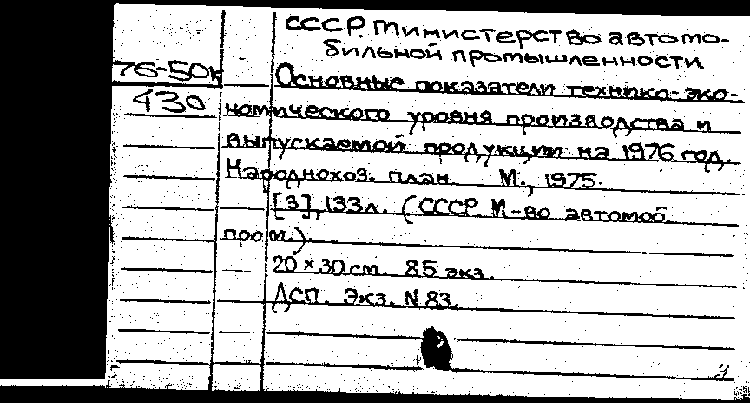 СССР. Министерство автомо-
бильной промышленности
76-50к
Основные показатели технико-эко-
430
номического уровня производства и
выпускаемой продукции на 1976 год.
Народнохоз. план. М., 1975.
[3], 133л. (СССР. М-во автомоб.
пром.).
20×30см. 85 экз.
ДСП. Экз. N 83.